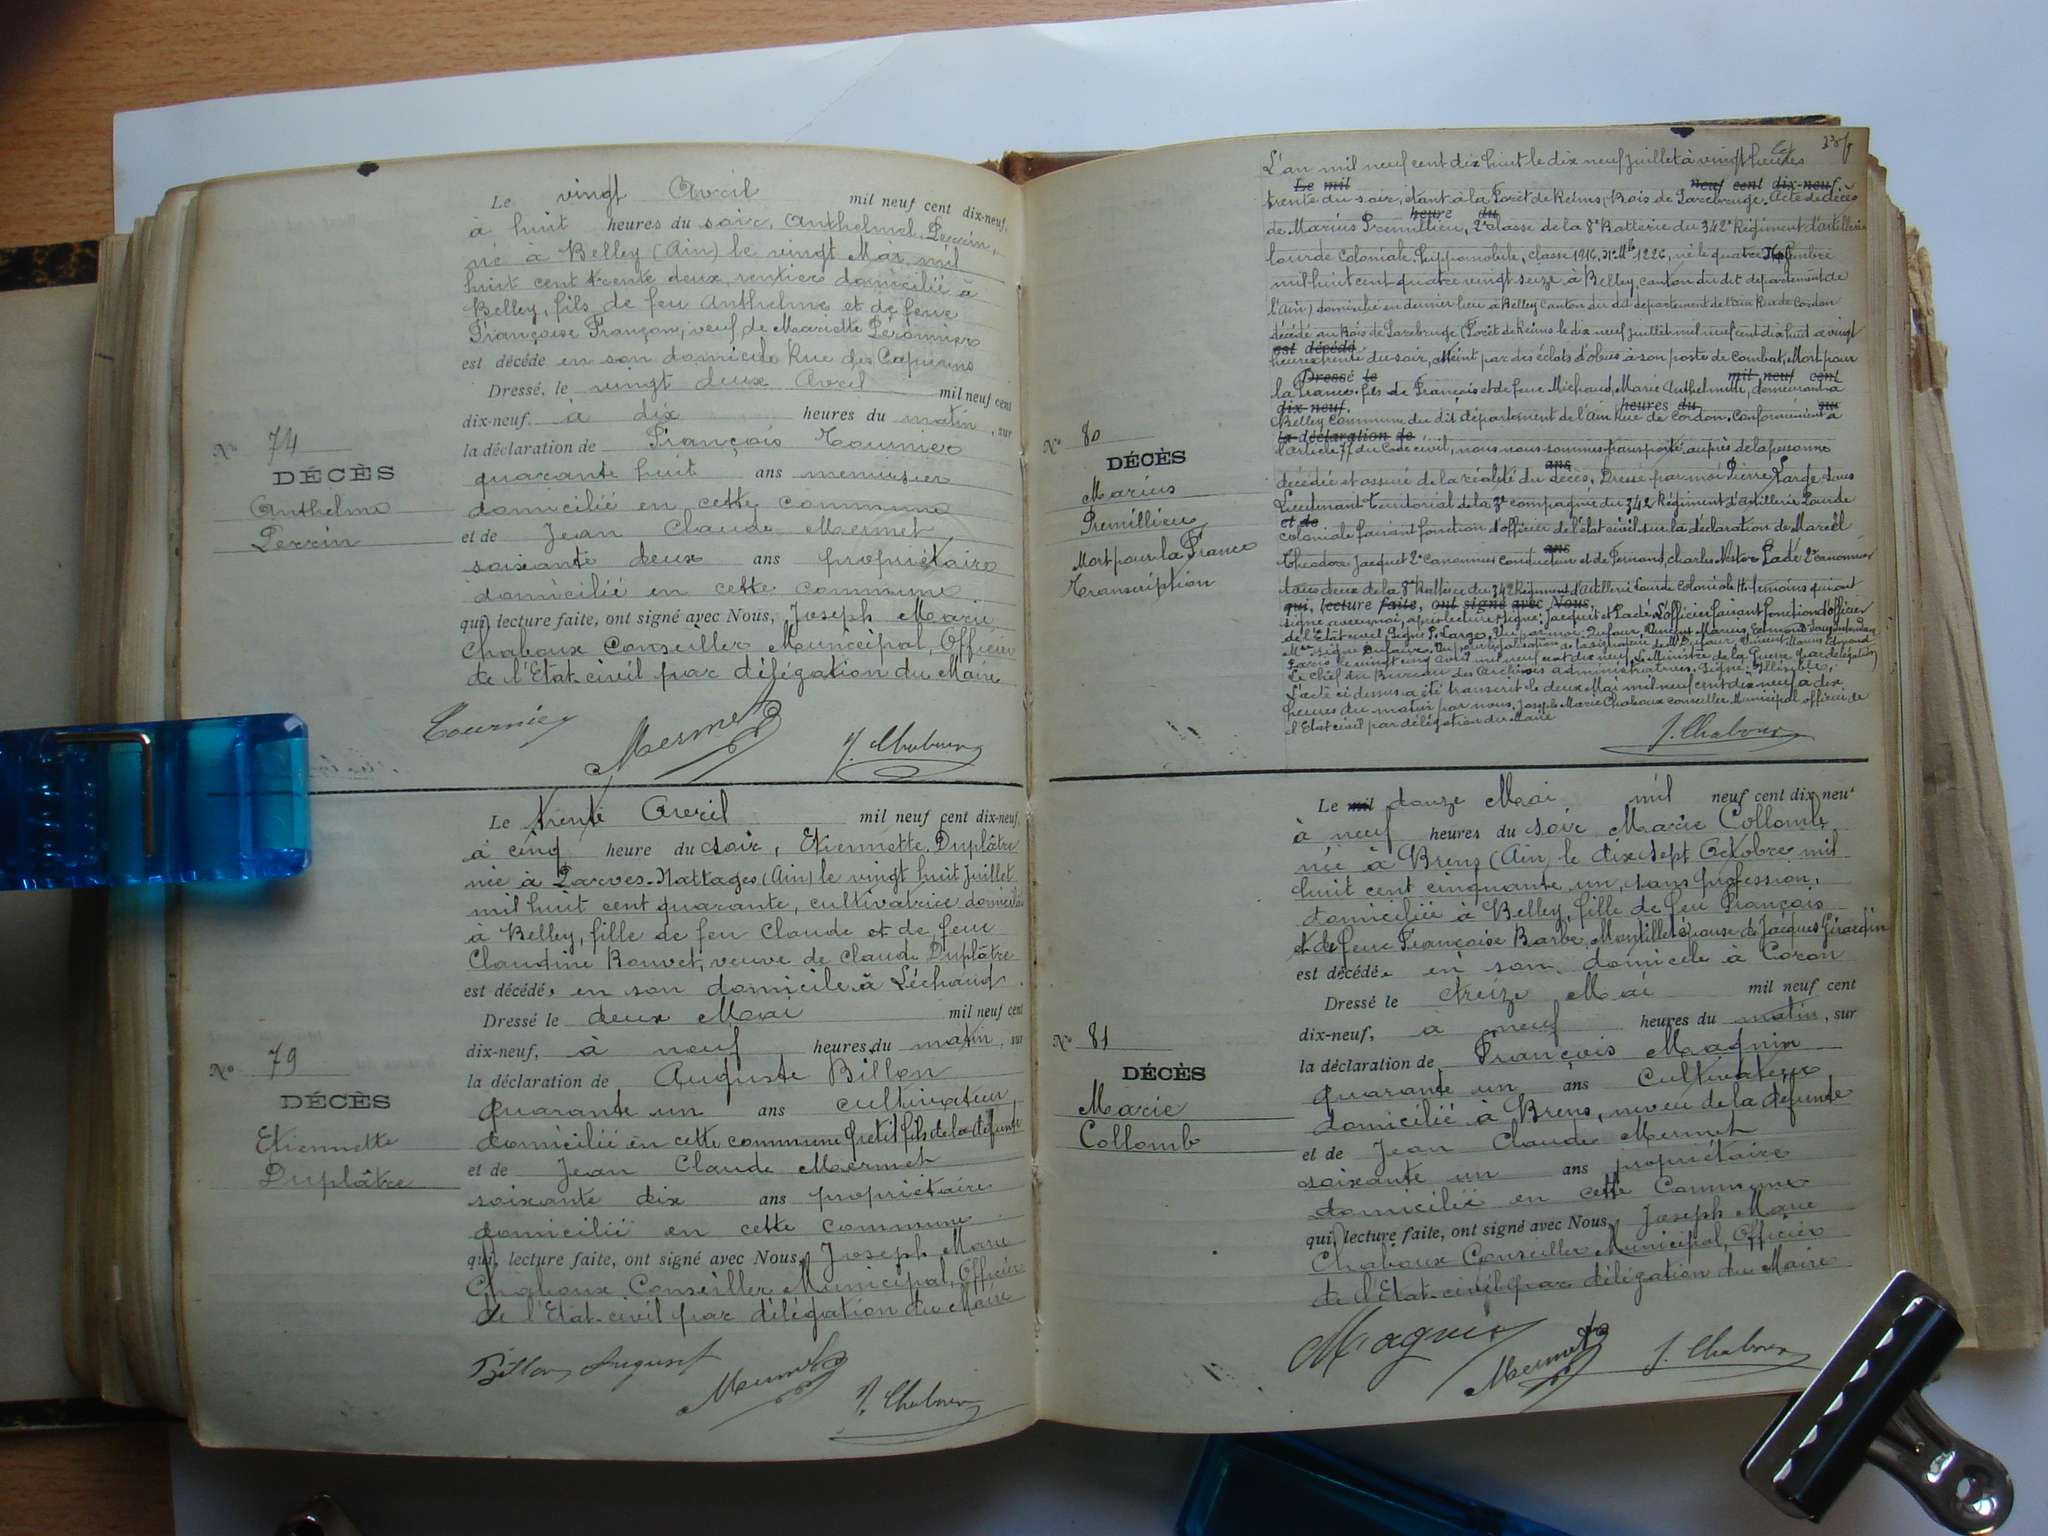 Le vingt Avril mil neuf cent dix-neuf,
à huit heures du soir, Anthelme Perrin,
né à Belley (Ain) le vingt Mai mil
huit cent trente deux, rentier domicilié à
Belley, fils de feu Anthelme et de feue
Françoise Françon, veuf de Mariette
est décédé en son domicile Rue des Capucins
Dressé, le vingt deux Avril mil neuf cent
dix-neuf à dix heures du matin, sur
la déclaration de François Tournier
quarante huit ans menuisier
domicilié en cette commune
et de Jean Claude Mermet
soixante deux ans propriétaire
domicilié en cette commune
qui, lecture faite, ont signé avec Nous, Joseph Marie
Chaboux Conseiller Municipal, Officier
de l'Etat-civil par délégation du Maire
Tournier Mermet J. Chaboux
N° 74
DÉCÈS
Anthelme
Perrin
Le trente Avril mil neuf cent dix-neuf,
à cinq heure du soir, Etiennette Duplâtre
née à Parves-Nattages (Ain) le vingt huit juillet
mil huit cent quarante, cultivatrice domiciliée
à Belley, fille de feu Claude et de feue
Claudine Bouvet, veuve de Claude Duplâtre
est décédée en son domicile à
Dressé le deux Mai mil neuf cent
dix-neuf, à neuf heures du matin, sur
la déclaration de Auguste Billon
quarante un ans cultivateur,
domicilié en cette commune petit fils de la défunte
et de Jean Claude Mermet
soixante dix ans propriétaire
domicilié en cette commune
qui, lecture faite, ont signé avec Nous, Joseph Marie
Chaboux Conseiller Municipal, Officier
de l'Etat-civil par délégation du Maire
Billon Auguste Mermet J. Chaboux
N° 79
DÉCÈS
Etiennette
Duplâtre
L'an mil neuf cent dix huit le dix neuf juillet à vingt heures
Le mil neuf cent dix-neuf
trente du soir, étant à la Forêt de Reims, Bois de Acte de décès
heure du
de Marius Premillieu, 2e classe de la 8e Batterie du 342e Régiment d'artillerie
lourde Coloniale Hippomobile, classe 1916, 1226, né le quatre
mil huit cent quatre vingt seize à Belley, canton du dit département de
l'Ain) domicilié en dernier lieu à Belley Canton du dit département de l'Ain Rue de Cordon
décédé au Bois de Forêt de Reims le dix neuf juillet mil neuf cent dix huit à vingt
est décédé
heures trente du soir, atteint par des éclats d'obus à son poste de combat, Mort pour
Dressé le mil neuf cent
la France, fils de François et de feue Michaud, Marie Anthelmette, demeurant à
dix-neuf. heures du
Belley Commune du dit département de l'Ain Rue de Cordon. Conformément à
la déclaration de
l'article 77 du Code civil, nous nous sommes transporté auprès de la personne
ans
décédée et assuré de la réalité du décès. Dressé par moi Pierre Large Sous
Lieutenant Territorial de la compagnie du 342 Régiment d'Artillerie Lourde
et de
coloniale faisant fonction d'officier de l'état civil sur la déclaration de Marcel
ans
Théodore Jacquet 2e Canonnier Conducteur et de Fernand, Charles Nestor Ladé 2e canonnier
tous deux de la 8e Batterie du 342 Régiment d'Artillerie Lourde Coloniale témoins qui ont
qui, lecture faite, ont signé avec Nous,
signé avec moi, après lecture, signé: Jacquet et Ladé. L'officier faisant fonction d'officier
de l'Etat civil signé P. Large. Vu par moi Dufour, Vincent Marius, Edmond
signé Dufour. Vu pour légalisation de la signature de Mr Dufour, Vincent Marius Edmond
Paris le vingt cinq Avril mil neuf cent dix neuf. Le Ministre de la Guerre (par délégation)
Le Chef du Bureau des Archives administratives. Signé: Illisible.
L'acte ci dessus a été transcrit le deux Mai mil neuf cent dix neuf à dix
heures du matin par nous, Joseph Marie Chaboux conseiller Municipal officier de
l'Etat civil par délégation du Maire
J. Chaboux
N° 80
DÉCÈS
Marius
Premillieu
Mort pour la France
Transcription
Le mil douze Mai mil neuf cent dix neuf
à neuf heures du soir Marie Collomb
née à Brens (Ain) le dix sept Octobre mil
huit cent cinquante un, sans profession,
domiciliée à Belley, fille de feu François
et de feue Françoise Barbe Montillet épouse de Jacques Girardin
est décédée en son domicile à Coron
Dressé le treize Mai mil neuf cent
dix-neuf, à neuf heures du matin, sur
la déclaration de François Magnin
quarante un ans Cultivateur
domicilié à Brens, neveu de la défunte
et de Jean Claude Mermet
soixante un ans propriétaire
domicilié en cette Commune
qui, lecture faite, ont signé avec Nous, Joseph Marie
Chaboux Conseiller Municipal, Officier
de l'Etat-civil par délégation du Maire
Magnin Mermet J. Chaboux
N° 81
DÉCÈS
Marie
Collomb